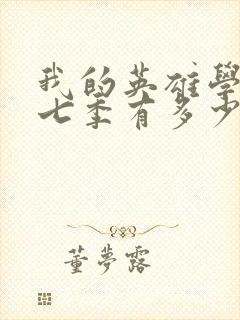 我的英雄學
七季有多少
董夢露